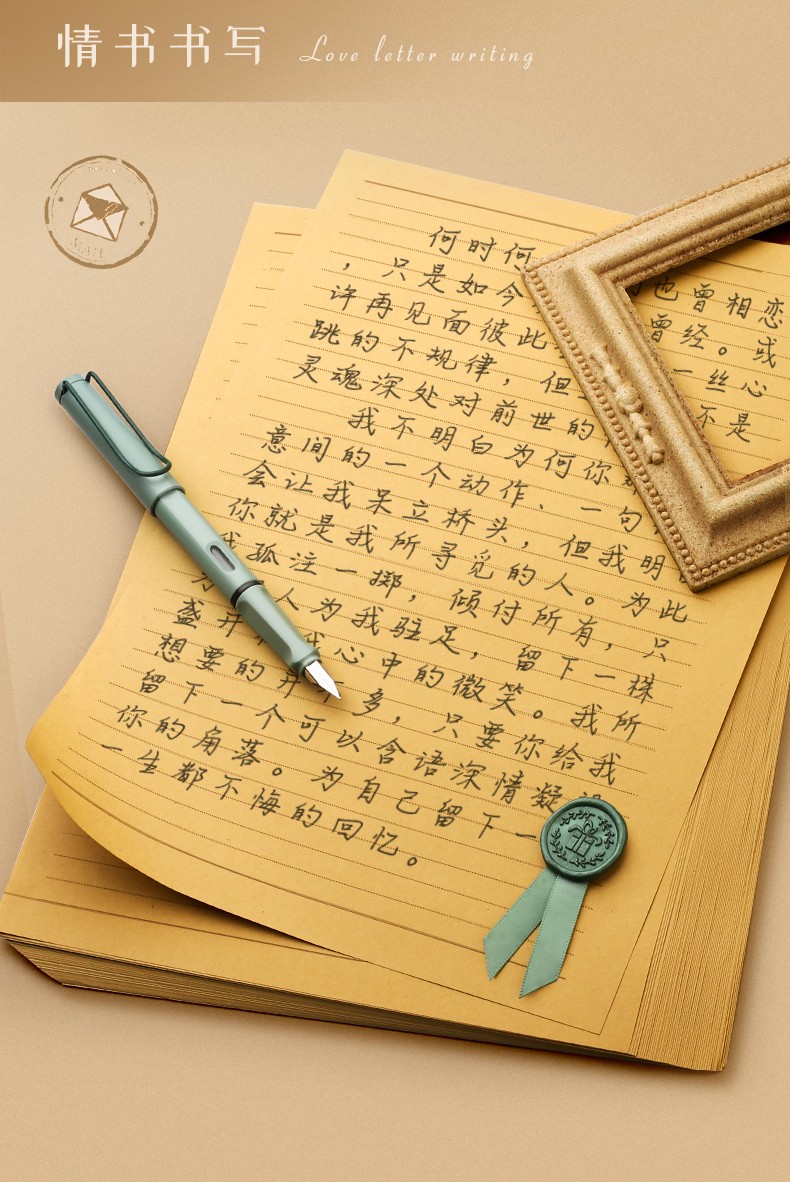 情书书写 Love letter writing
MAIL
何时何
也曾相恋
，只是如今
曾经。或
许再见面彼此
一丝心
跳的不规律，但
不是
灵魂深处对前世的
我不明白为何你
意间的一个动作、一句
会让我呆立桥头，但我明
你就是我所寻觅的人。为此
我孤注一掷，倾付所有，只
为 人为我驻足，留下一株
盏开 我心中的微笑。我所
想要的并不多，只要你给我
留下一个可以含语深情凝
你的角落。为自己留下一
一生都不悔的回忆。